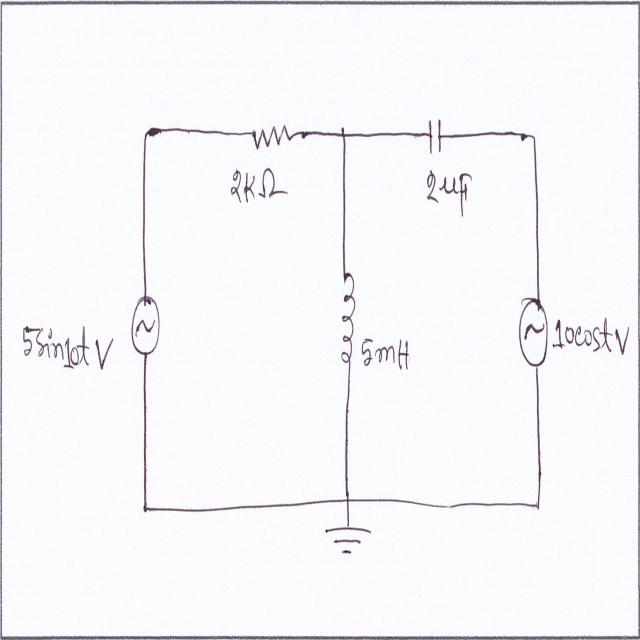 2KΩ
2μF
5Sin10t V
5mH
10cost V